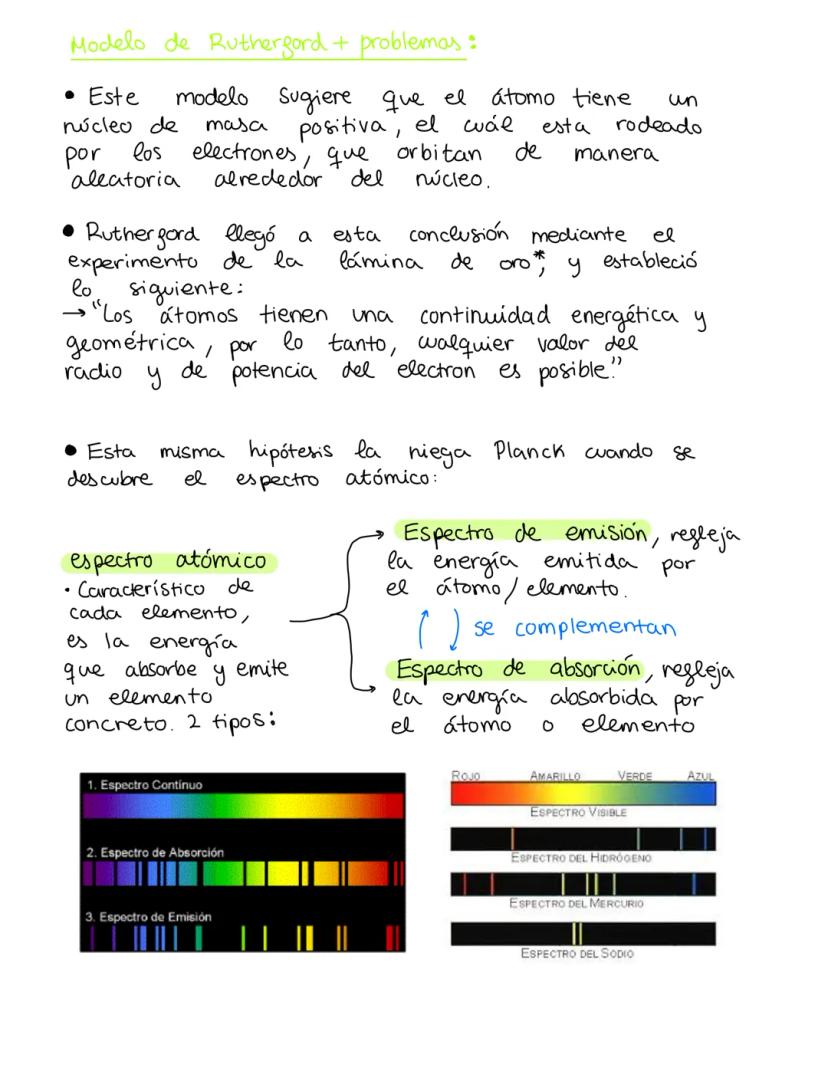 Modelo de Ruthergord + problemas:
• Este modelo sugiere que el átomo tiene un
núcleo de masa positiva, el cuál esta rodeado
por los electrones, que orbitan de manera
aleatoria alrededor del núcleo.
• Ruthergord llegó a esta conclusión mediante el
experimento de la lámina de oro*, y estableció
lo siguiente:
→ "Los átomos tienen una continuidad energética y
geométrica, por lo tanto, cualquier valor del
radio y de potencia del electron es posible."
• Esta misma hipótesis la niega Planck cuando se
descubre el espectro atómico:
espectro atómico
· Característico de
cada elemento,
es la energía
que absorbe y emite
un elemento
concreto. 2 tipos:
Espectro de emisión, regleja
la energía emitida por
el átomo/elemento.
se complementan
Espectro de absorción, regleja
la energía absorbida por
el átomo o elemento
1. Espectro Contínuo
2. Espectro de Absorción
3. Espectro de Emisión
ROJO AMARILLO VERDE AZUL
ESPECTRO VISIBLE
ESPECTRO DEL HIDRÓGENO
ESPECTRO DEL MERCURIO
ESPECTRO DEL SODIO